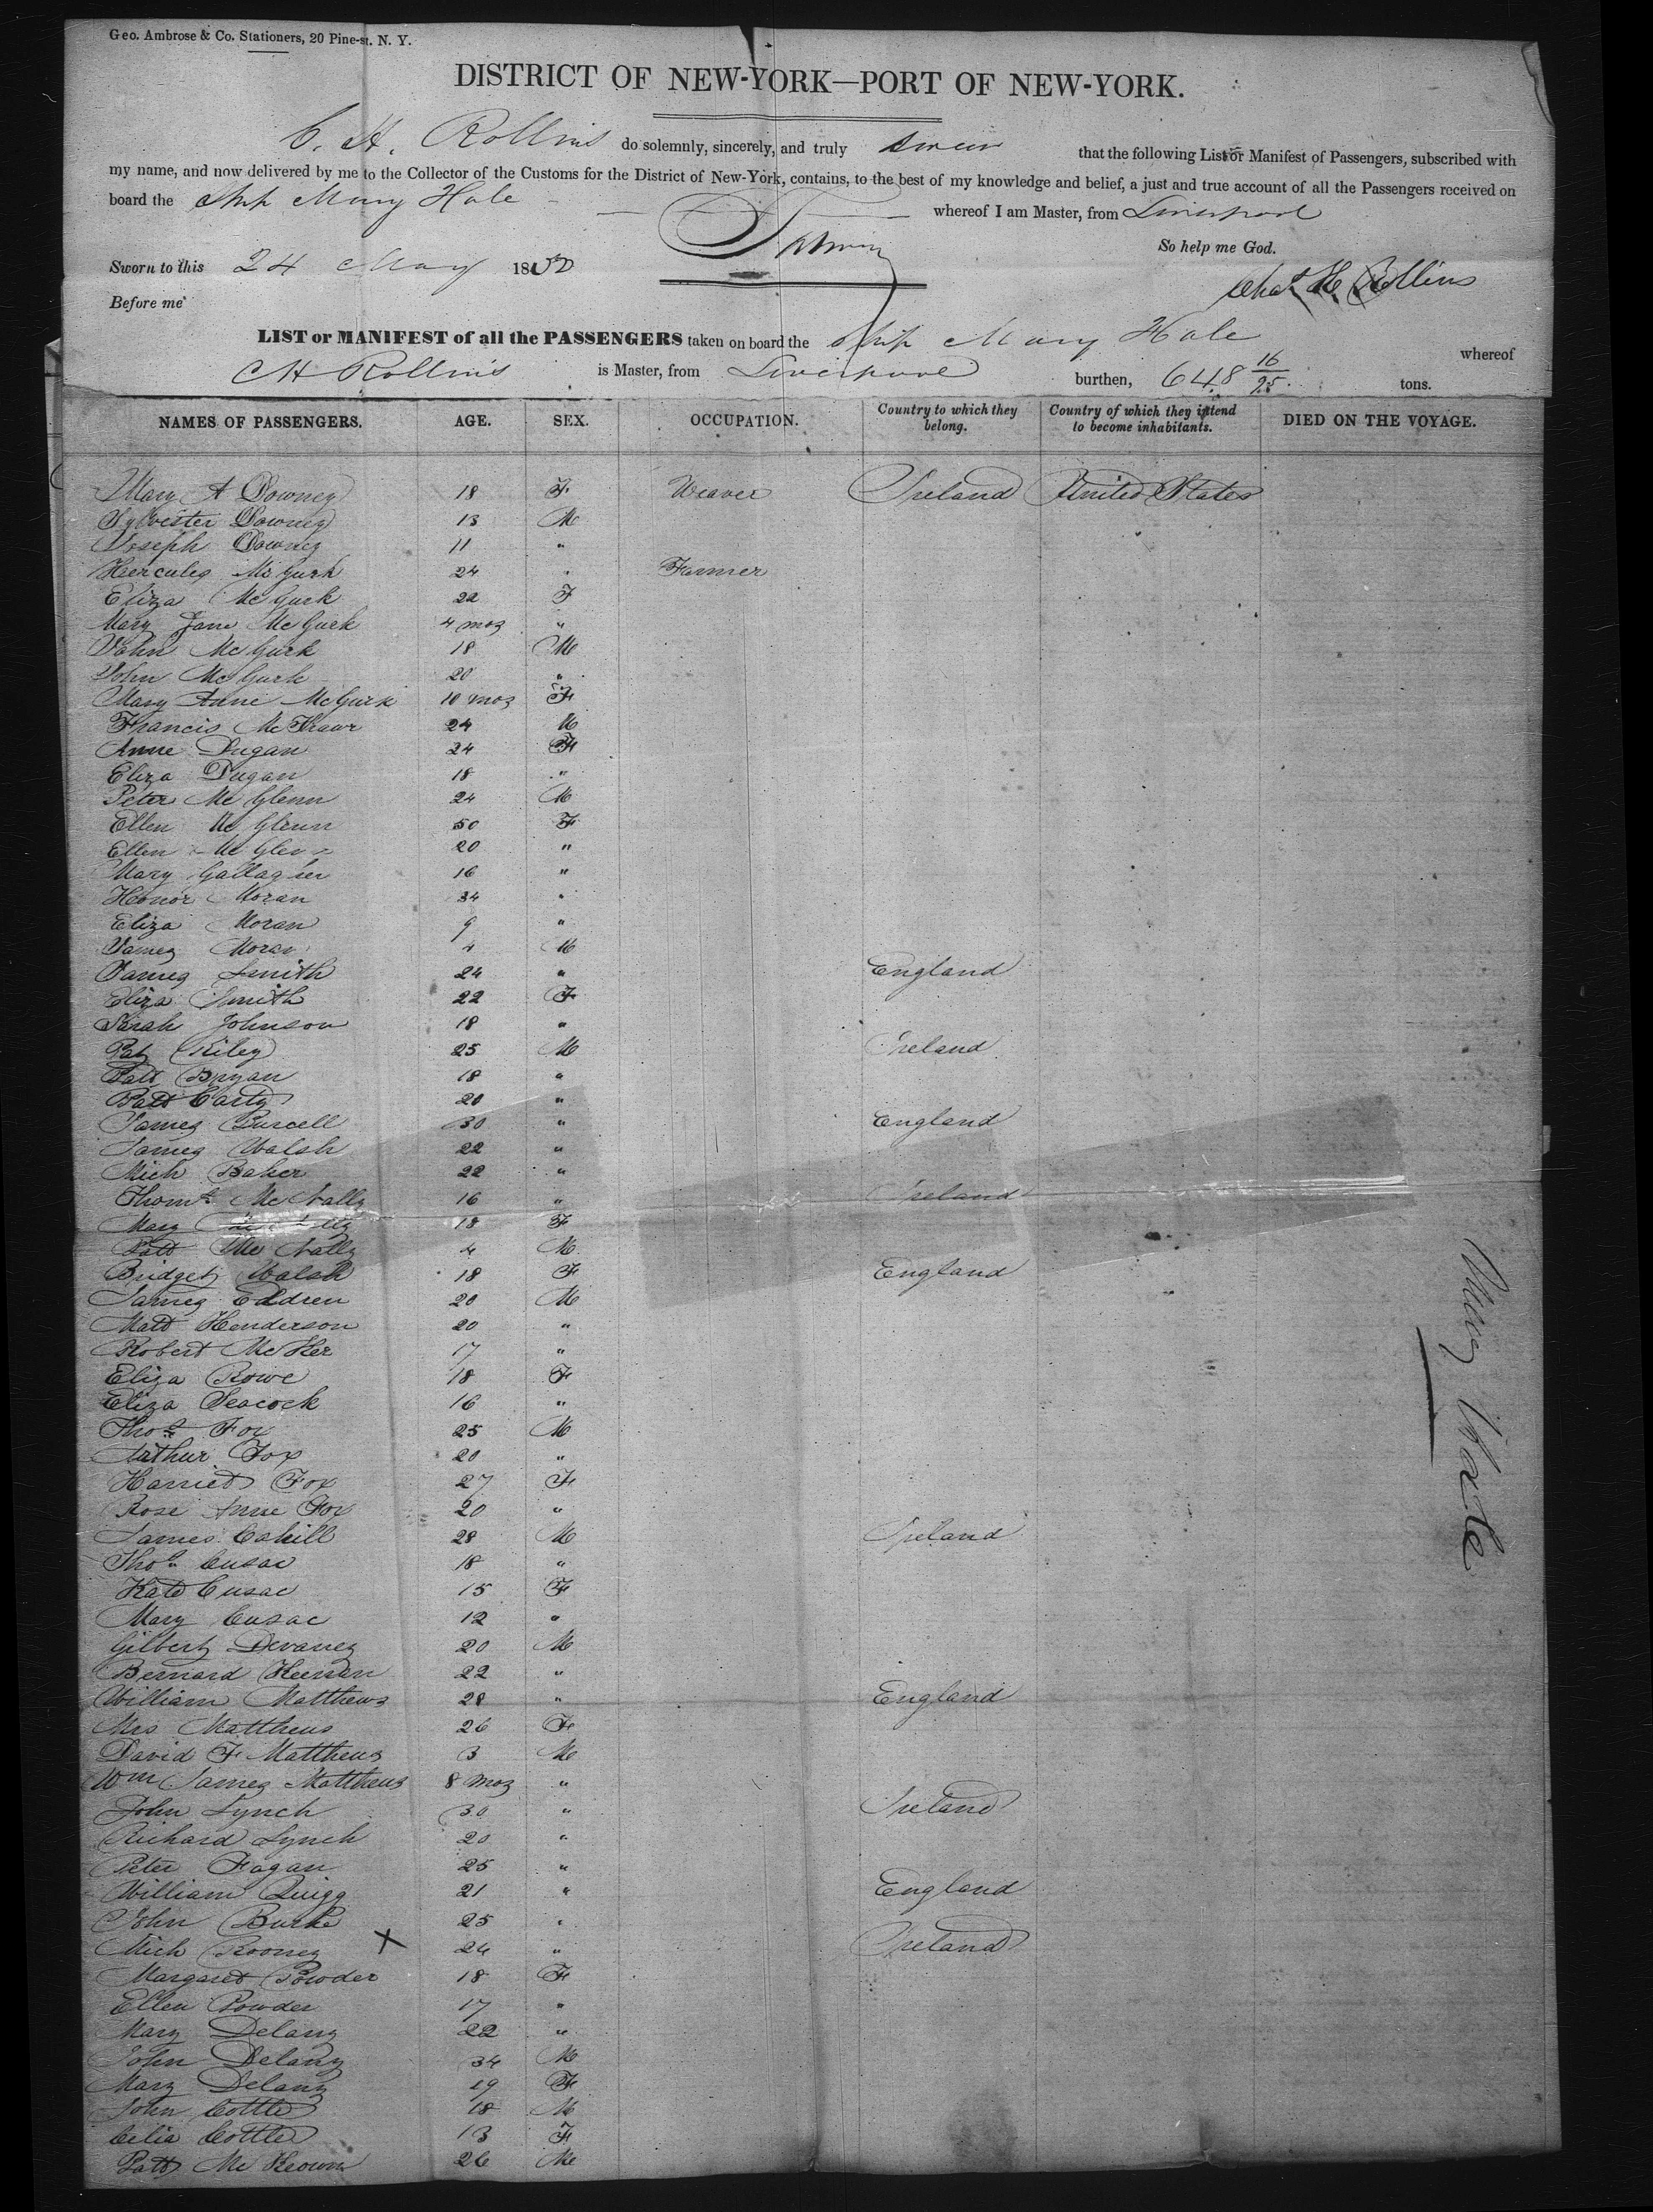 Geo. Ambrose & Co. Stationers, 20 Pine-st. N. Y.
DISTRICT OF NEW-YORK—PORT OF NEW-YORK.
C. H. Rollins do solemnly, sincerely, and truly swear that the following List or Manifest of Passengers, subscribed with
my name, and now delivered by me to the Collector of the Customs for the District of New-York, contains, to the best of my knowledge and belief, a just and true account of all the Passengers received on
board the Ship Mary Hale whereof I am Master, from Liverpool
So help me God.
Sworn to this 24 May 1850
Chas. H Rollins
Before me
LIST or MANIFEST of all the PASSENGERS taken on board the Ship Mary Hale whereof
C H Rollins is Master, from Liverpool burthen, 648 16/95 tons.
NAMES OF PASSENGERS. AGE. SEX. OCCUPATION. Country to which they belong. Country of which they intend to become inhabitants. DIED ON THE VOYAGE.
Mary A Downey 18 F Weaver Ireland United States
Sylvester Downey 13 M
Joseph Downey 11 "
Hercules McGurk 24 " Farmer
Eliza McGurk 22 F
Mary Jane McGurk 4 mos "
John McGurk 18 M
John McGurk 20 "
Mary Anne McGurk 10 mos F
Francis Mc 24 M
Anne Dugan 24 F
Eliza Dugan 18 "
Peter McGlenn 24 M
Ellen McGlenn 50 F
Ellen McGlen 20 "
Mary Gallagher 16 "
Honor Moran 34 "
Eliza Moran 9 "
James Moran 4 M
James Smith 24 " England
Eliza Smith 22 F
Sarah Johnson 18 "
Pat Riley 25 M Ireland
Patt Bryan 18 "
Patt Carty 20 "
James Purcell 30 " England
James Walsh 22 "
Mich Baker 22 "
Thoms McNally 16 " Ireland
Mary 18 F
Patt McNally 4 M
Bridget Walsh 18 F England
James Eldren 20 M
Matt Henderson 20 "
Robert McKer 17 "
Eliza Rowe 18 F
Eliza Peacock 16 "
Thos Fox 25 M
Arthur Fox 20 "
Harriet Fox 27 F
Rose Anne Fox 20 "
James Cahill 28 M Ireland
Thos Cusac 18 "
Kate Cusac 15 F
Mary Cusac 12 "
Gilbert Devaney 20 M
Bernard Keenan 22 "
William Matthews 28 " England
Mrs Matthews 26 F
David F Matthews 3 M
Wm James Matthews 8 mos "
John Lynch 30 " Ireland
Richard Lynch 20 "
Peter Fagan 25 "
William Quigg 21 " England
John Burke 25 "
Mich Rooney X 24 " Ireland
Margaret Powder 18 F
Ellen Powder 17 "
Mary Delany 22 "
John Delany 34 M
Mary Delany 19 F
John Cottle 18 M
Celia Cottle 13 F
Patt McKeown 26 M
Mary Hale